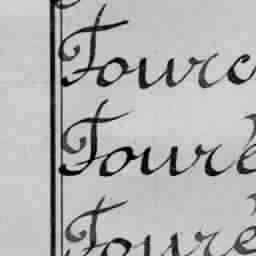 Fourc
Fouré
Fouré